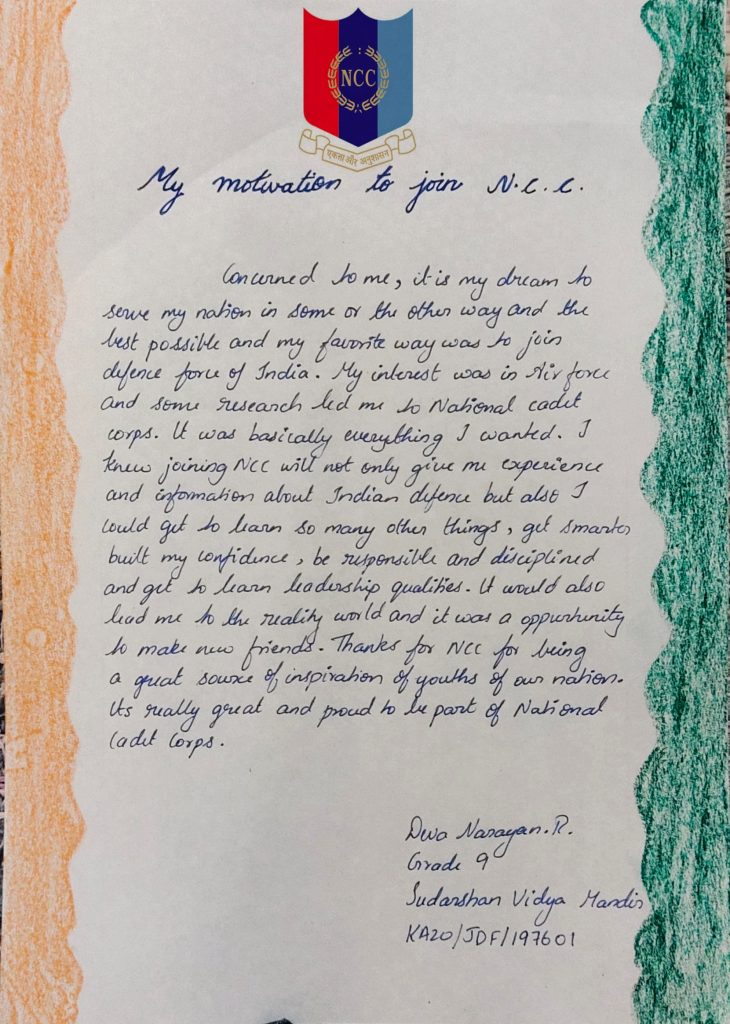 NCC
एकता और अनुशासन
My motivation to join N.C.C.
Concerned to me, it is my dream to
serve my nation in some or the other way and the
best possible and my favorite way was to join
defence force of India. My interest was in Air force
and some research led me to National cadet
corps. It was basically everything I wanted. I
knew joining NCC will not only give me experience
and information about Indian defence but also I
could get to learn so many other things, get smarter
built my confidence, be responsible and disciplined
and get to learn leadership qualities. It would also
lead me to the reality world and it was a oppurtunity
to make new friends. Thanks for NCC for being
a great source of inspiration of youths of our nation.
Its really great and proud to be part of National
Cadet Corps.
Deva Narayan.R.
Grade 9
Sudarshan Vidya Mandir
KA20/JDF/197601